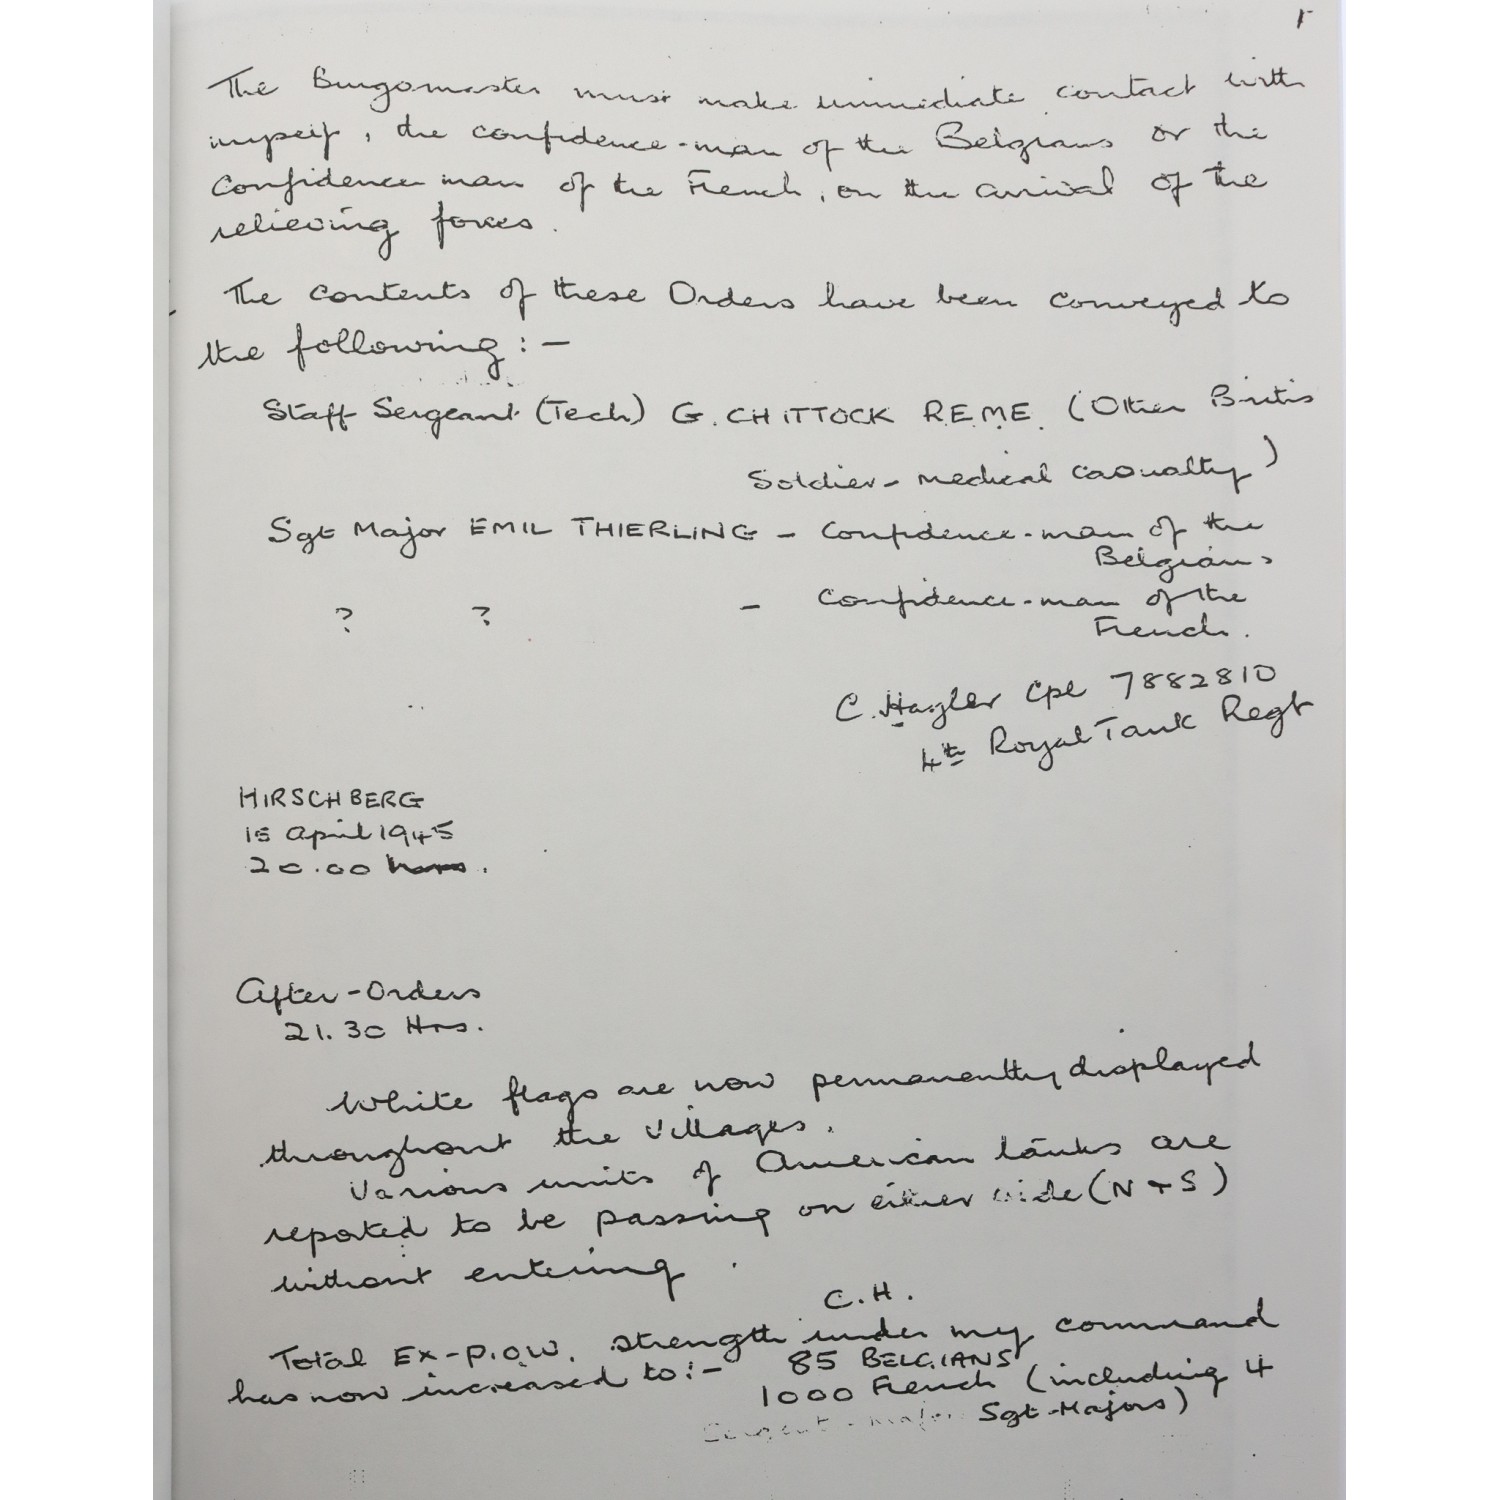 The Burgomaster must make immediate contact with
myself, the confidence-man of the Belgians or the
Confidence man of the French, on the arrival of the
relieving forces.
The contents of these Orders have been conveyed to
the following:-
Staff Sergeant (Tech) G. CHITTOCK R.E.M.E. (Other Britis
Soldier - medical casualty)
Sgt Major EMIL THIERLING - Confidence-man of the
Belgians
? ? - Confidence-man of the
French.
C. Hagler Cpl 7882810
4th Royal Tank Regt
HIRSCHBERG
15 April 1945
20.00 hours.
After-Orders
21.30 Hrs.
White flags are now permanently displayed
throughout the villages.
Various units of American tanks are
reported to be passing on either side (N + S)
without entering.
C.H.
Total Ex-P.O.W. strength under my command
has now increased to:- 85 BELGIANS
1000 French (including 4
Sgt-Majors)